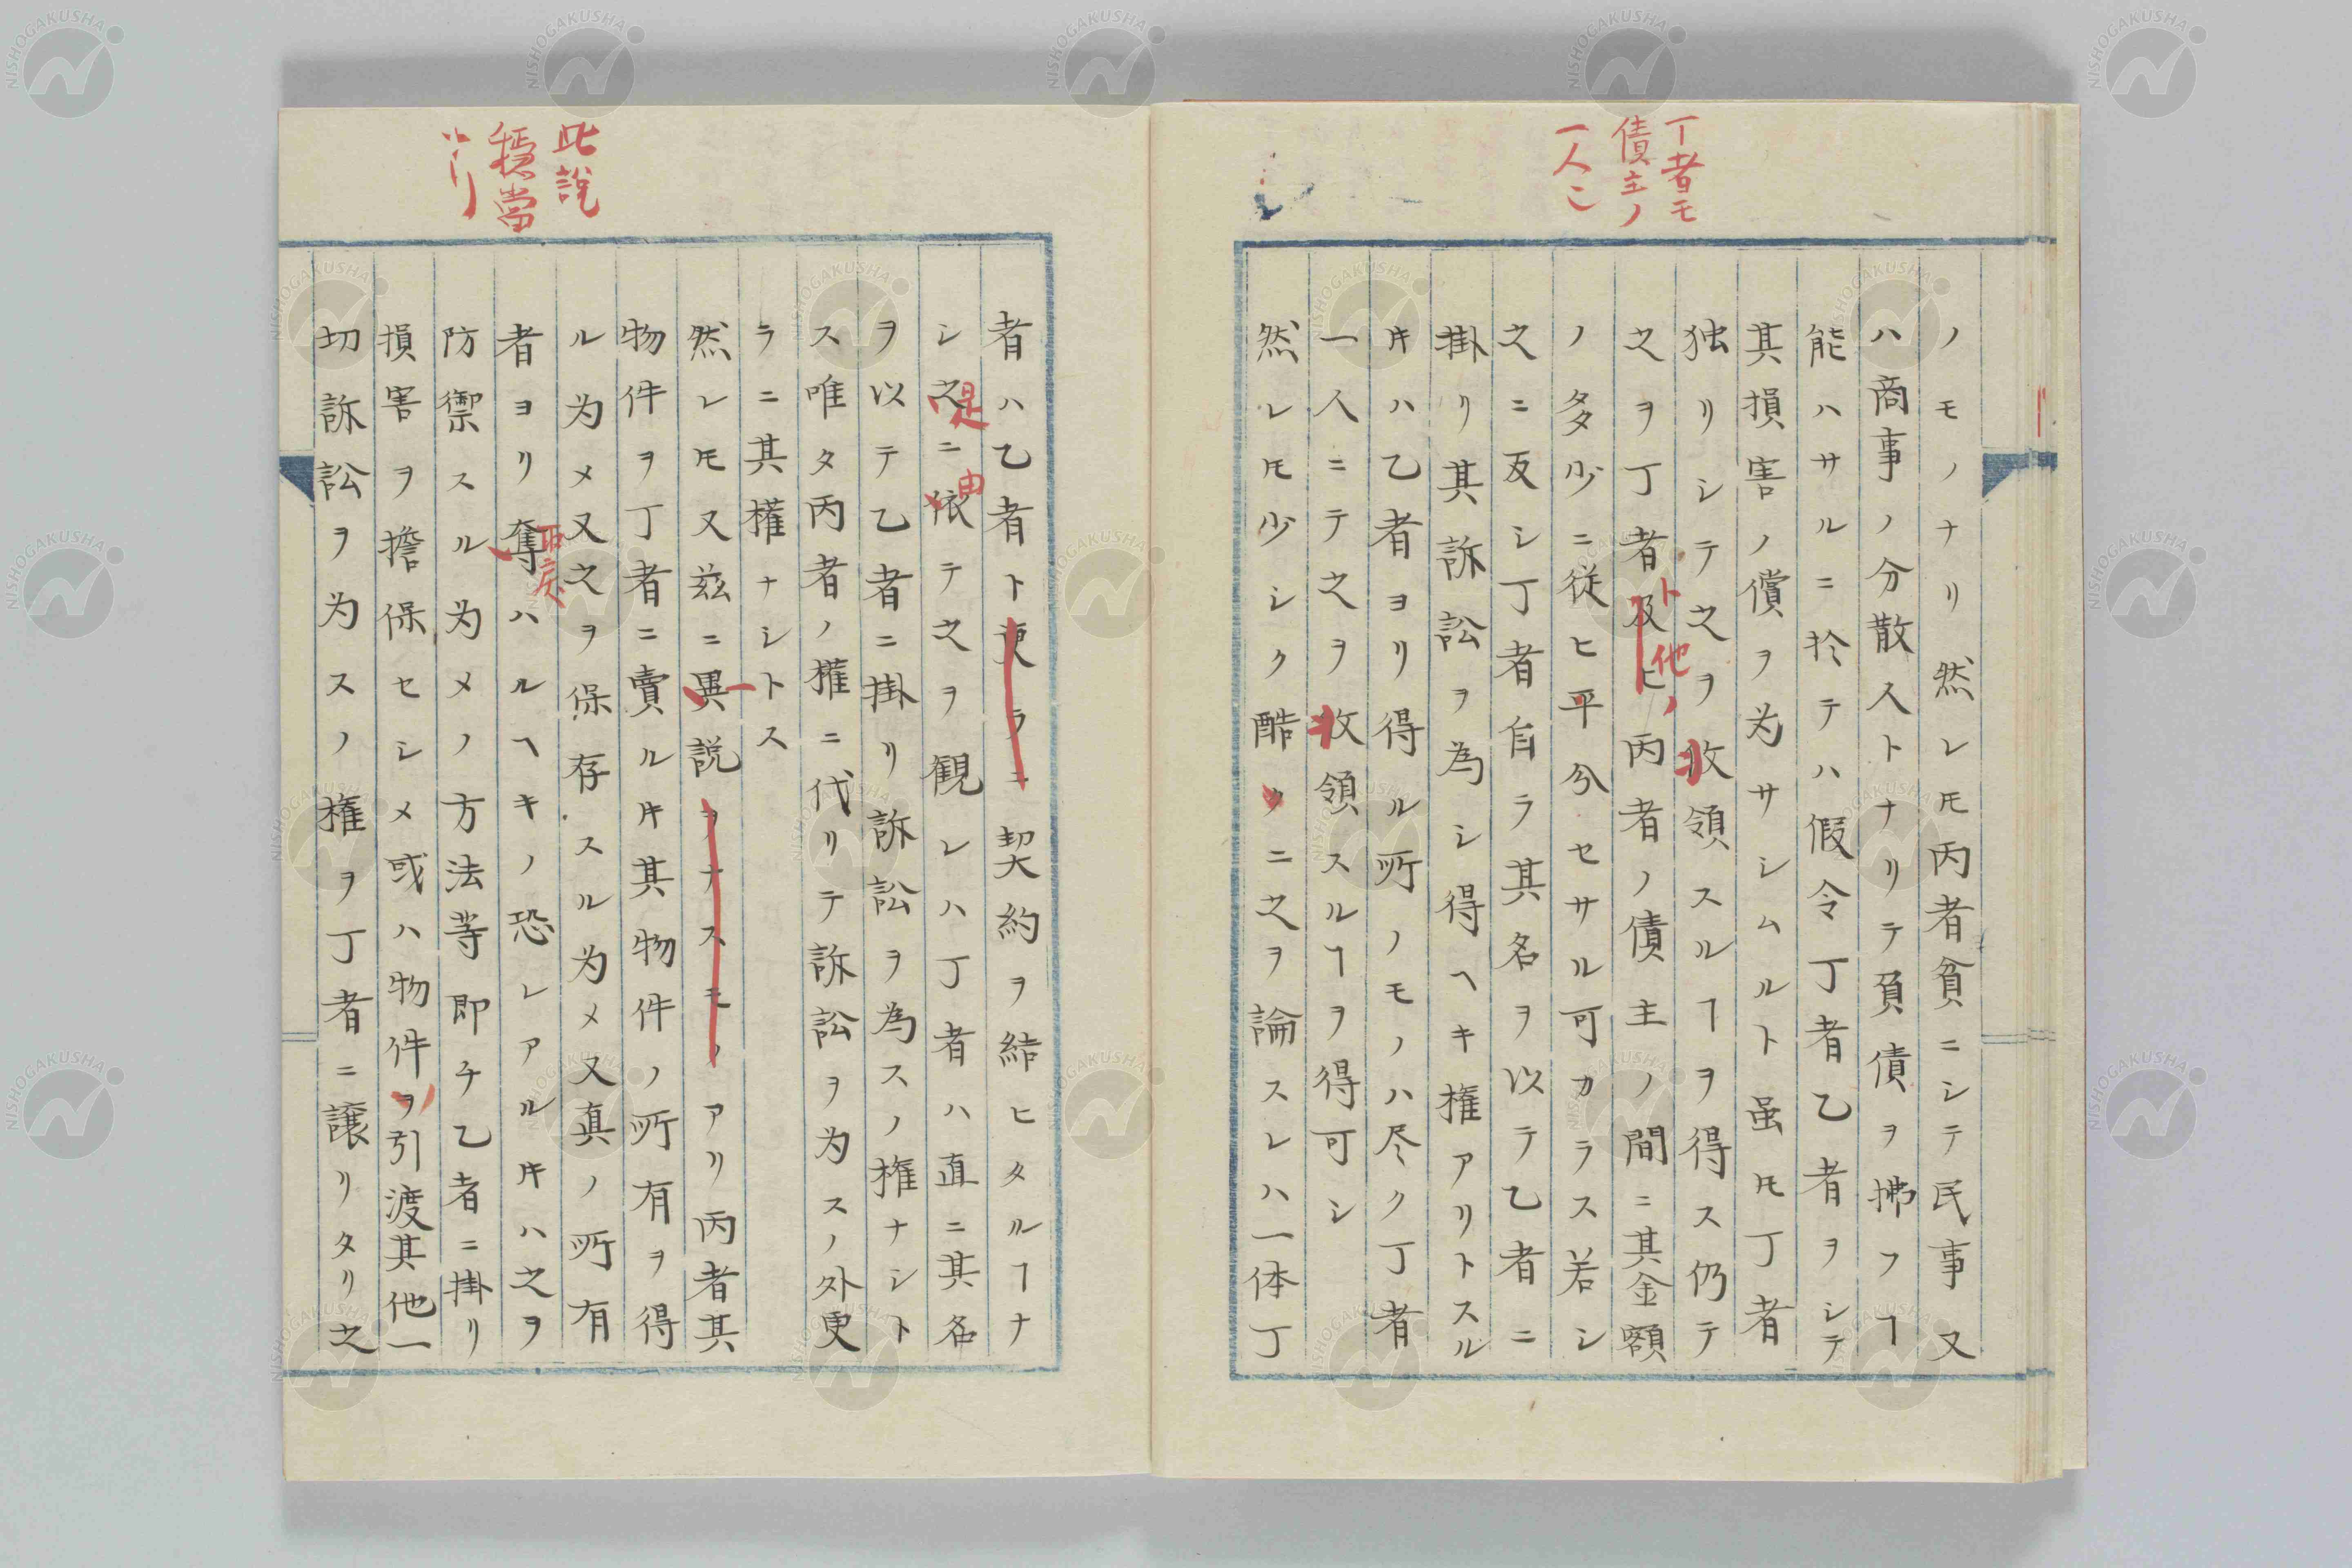 丁者モ
債主ノ
一人ニ
ノモノナリ然レ𪜈丙者貧ニシテ民事又
ハ商事ノ分散人トナリテ負債ヲ拂フヿ
能ハサルニ於テハ假令丁者乙者ヲシテ
其損害ノ償ヲ为サシムルト虽𪜈丁者
独リシテ之ヲ收領スルヿヲ得ス仍テ
之ヲ丁者及ヒ丙者ノ債主ノ間ニ其金額
ト他ノ
ノ多少ニ従ヒ平分セサル可カラス若シ
之ニ反シ丁者自ラ其名ヲ以テ乙者ニ
掛リ其訴訟ヲ為シ得ヘキ権アリトスル
𪜈ハ乙者ヨリ得ル所ノモノハ尽ク丁者
一人ニテ之ヲ收領スルヿヲ得可シ
然レ𪜈少シク酷クニ之ヲ論スレハ一体丁
此説
穏當
者ハ乙者ト更ラニ契約ヲ結ヒタルヿナ
シ之ニ依テ之ヲ観レハ丁者ハ直ニ其名
是
由
ヲ以テ乙者ニ掛リ訴訟ヲ為スノ権ナシト
ス唯タ丙者ノ権ニ代リテ訴訟ヲ为スノ外更
ラニ其権ナシトス
然レ𪜈又茲ニ異説ヲナスモノアリ丙者其
物件ヲ丁者ニ賣ル𪜈其物件ノ所有ヲ得
ル为メ又之ヲ保存スル为メ又真ノ所有
者ヨリ奪ハルヘキノ恐レアル𪜈ハ之ヲ
取戻
防禦スル为メノ方法等即チ乙者ニ掛リ
損害ヲ擔保セシメ或ハ物件ヲ引渡其他一
切訴訟ヲ为スノ権ヲ丁者ニ譲リタリ之